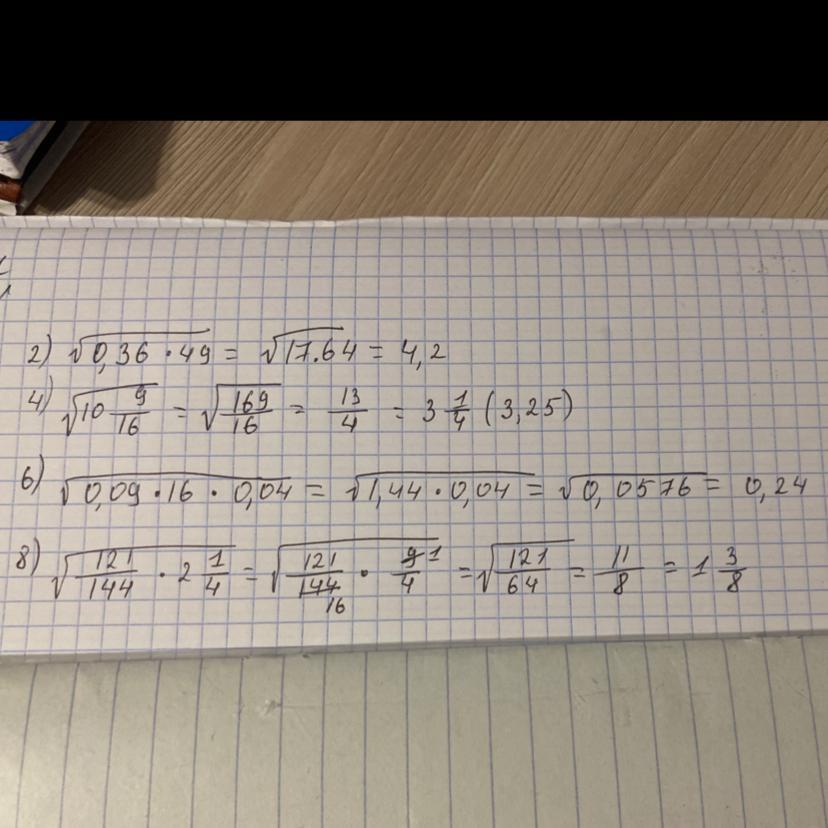 2) √0,36 · 49 = √17.64 = 4,2
4) √10 9/16 = √169/16 = 13/4 = 3 1/4 (3,25)
6) √0,09 · 16 · 0,04 = √1,44 · 0,04 = √0,0576 = 0,24
8) √121/144 · 2 1/4 = √121/144 16 · 9/4 1 = √121/64 = 11/8 = 1 3/8